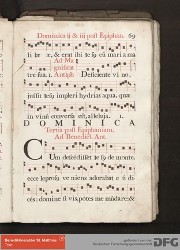 Dominica ij & iij post Epiphan. 69
li bræ, & erat ibi te su cū mari a ma
Ad Ma
gnificat
tre sua. 1. Antiph. Deficiente vi no,
jussit Jesu impleri hydrias aqua, quæ
in vinū conversa est, alleluja. 1.
DOMINICA
Tertia post Epiphaniam,
Ad Benedict. Ant.
Cum descēdisset Jesu de monte,
ecce leprosus veniens adorabat eū di
cens: domine si vis, potes me mūdare: &
Benediktinerabtei St. Matthias
Trier
DFG